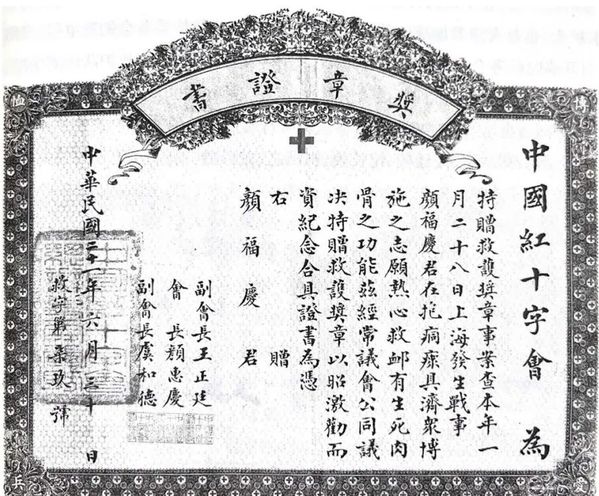 獎章證書
博
愛
恤
兵
中國紅十字會 為
特贈救護獎章事案查本年一
月二十八日上海發生戰事
顏福慶君在抱痌瘝具濟眾博
施之志願熱心救卹有生死肉
骨之功能茲經常議會公同議
決特贈救護獎章以昭激勸而
資紀念合具證書為憑
右 贈
顏福慶 君
副會長王正廷
會 長顏惠慶
副會長虞和德
中華民國二十一年六月三十日
救字第柒玖號